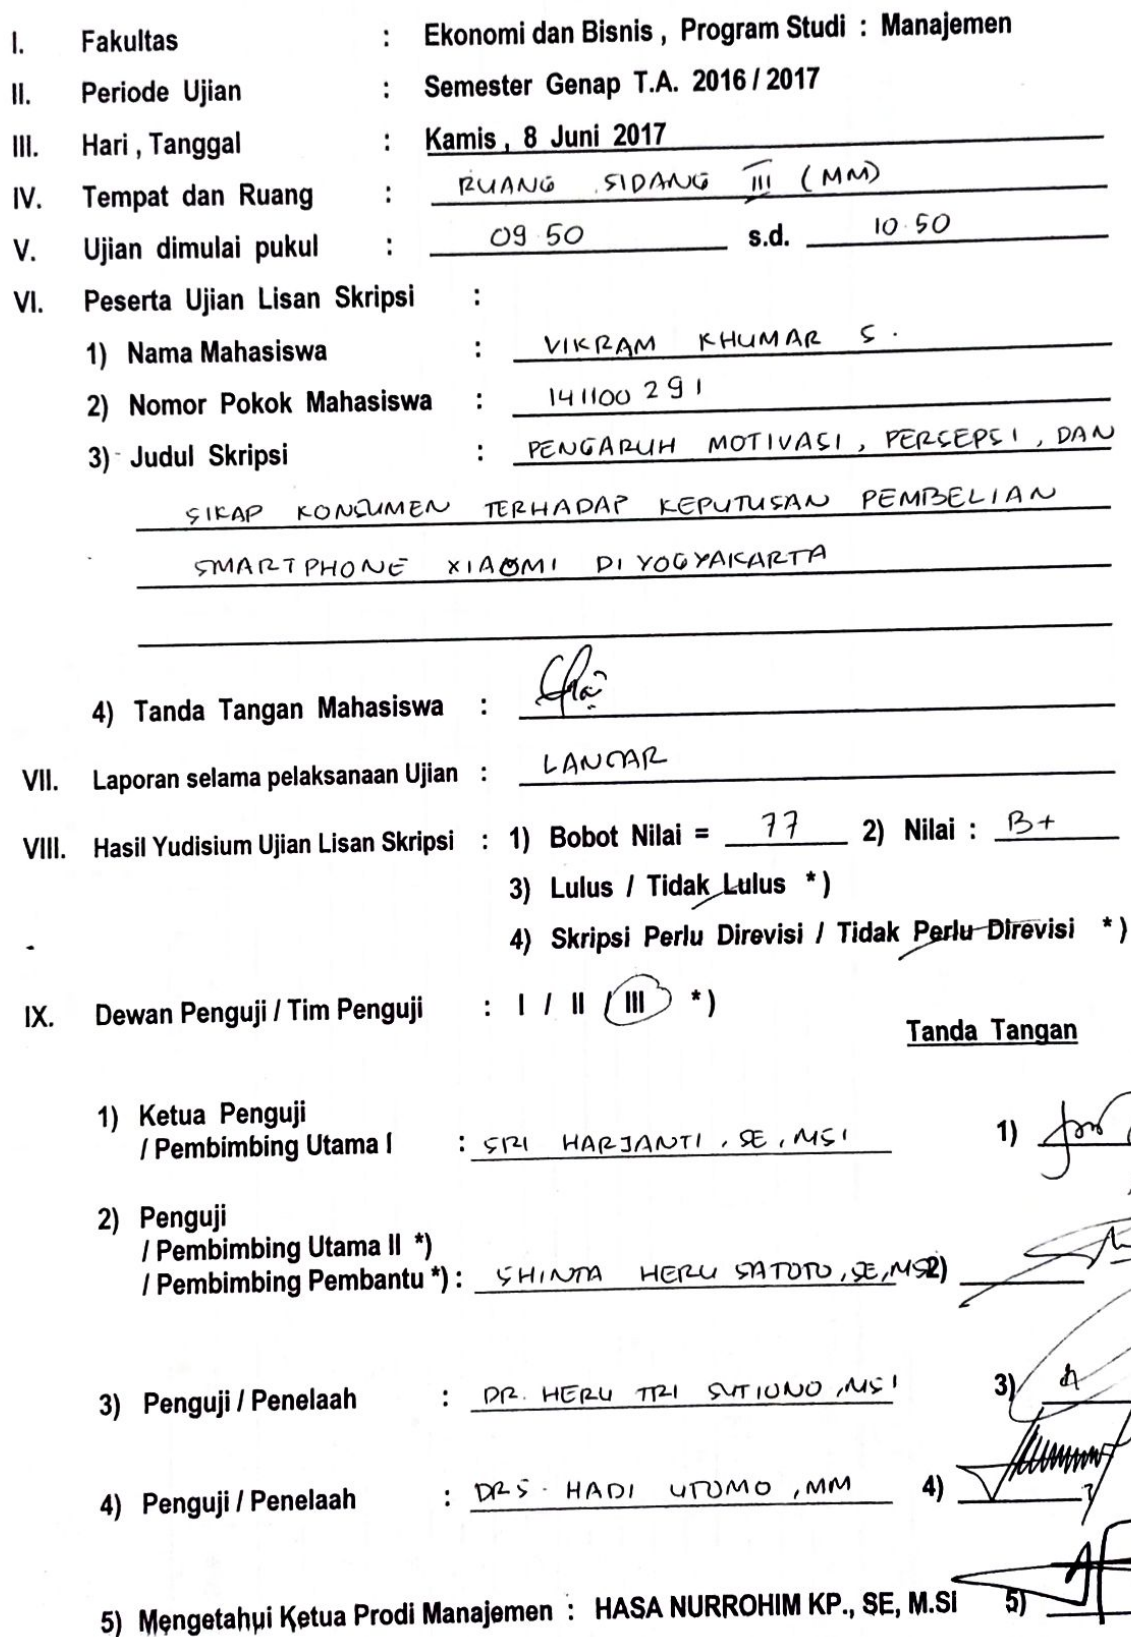 I. Fakultas : Ekonomi dan Bisnis , Program Studi : Manajemen
II. Periode Ujian : Semester Genap T.A. 2016 / 2017
III. Hari , Tanggal : Kamis , 8 Juni 2017
IV. Tempat dan Ruang : RUANG SIDANG III (MM)
V. Ujian dimulai pukul : 09.50 s.d. 10.50
VI. Peserta Ujian Lisan Skripsi :
1) Nama Mahasiswa : VIKRAM KHUMAR S.
2) Nomor Pokok Mahasiswa : 141100291
3) Judul Skripsi : PENGARUH MOTIVASI, PERSEPSI, DAN
SIKAP KONSUMEN TERHADAP KEPUTUSAN PEMBELIAN
SMARTPHONE XIAOMI DI YOGYAKARTA
4) Tanda Tangan Mahasiswa :
VII. Laporan selama pelaksanaan Ujian : LANCAR
VIII. Hasil Yudisium Ujian Lisan Skripsi : 1) Bobot Nilai = 77 2) Nilai : B+
3) Lulus / Tidak Lulus *)
4) Skripsi Perlu Direvisi / Tidak Perlu Direvisi *)
IX. Dewan Penguji / Tim Penguji : I / II / III *)
Tanda Tangan
1) Ketua Penguji
/ Pembimbing Utama I : SRI HARJANTI, SE, MSI 1)
2) Penguji
/ Pembimbing Utama II *)
/ Pembimbing Pembantu *) : SHINTA HERU SATOTO, SE, MSI 2)
3) Penguji / Penelaah : DR. HERU TRI SUTIONO, MSI 3)
4) Penguji / Penelaah : DRS. HADI UTOMO, MM 4)
5) Mengetahui Ketua Prodi Manajemen : HASA NURROHIM KP., SE, M.Si 5)